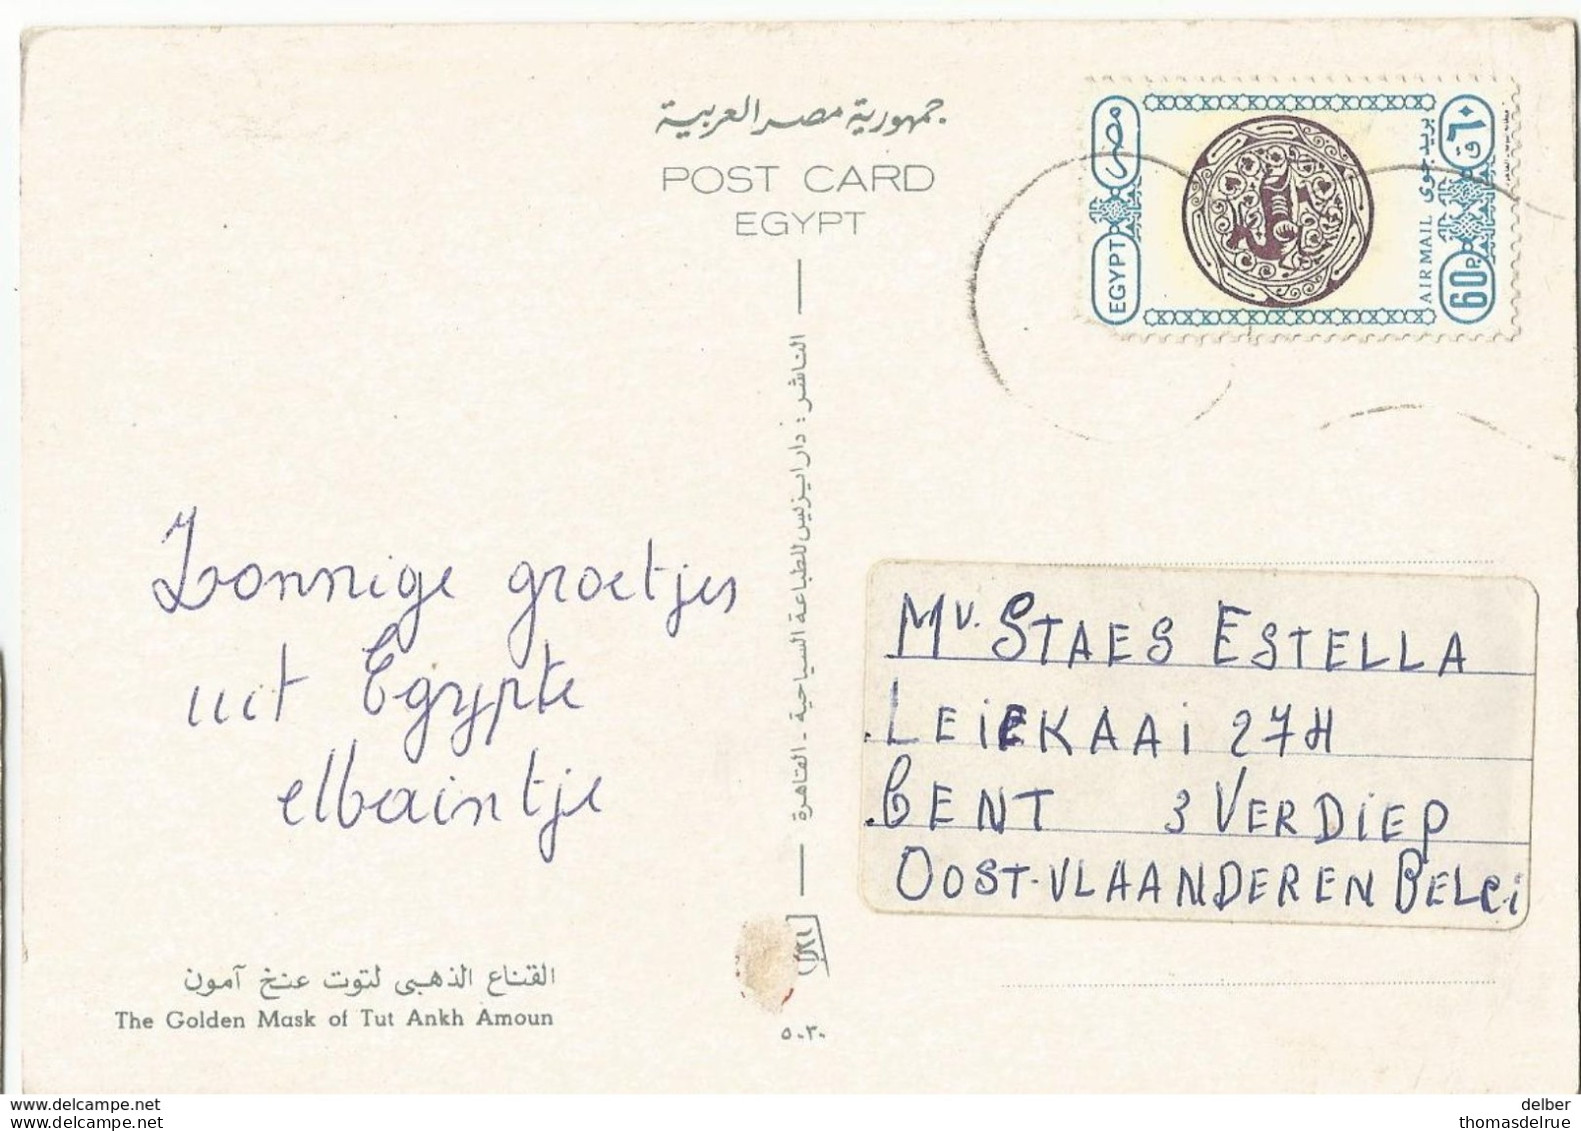 جمهورية مصر العربية
POST CARD
EGYPT
مصر
EGYPT
بريد جوى
AIR MAIL
٦٠ ق
60 P
الناشر : دار ايزيس للطباعة السياحية - القاهرة
Zonnige groetjes
uit Egypte
elbaintje
Mv. STAES ESTELLA
LEIEKAAI 27H
GENT 3 VERDIEP
OOST-VLAANDEREN BELGi
القناع الذهبى لتوت عنخ آمون
The Golden Mask of Tut Ankh Amoun
٥٠٣٠
delcampe.net
delber
thomasdelrue